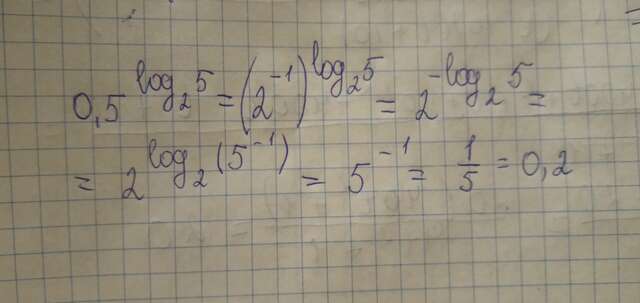 0,5^{log_2 5} = (2^{-1})^{log_2 5} = 2^{-log_2 5} =
= 2^{log_2 (5^{-1})} = 5^{-1} = \frac{1}{5} = 0,2